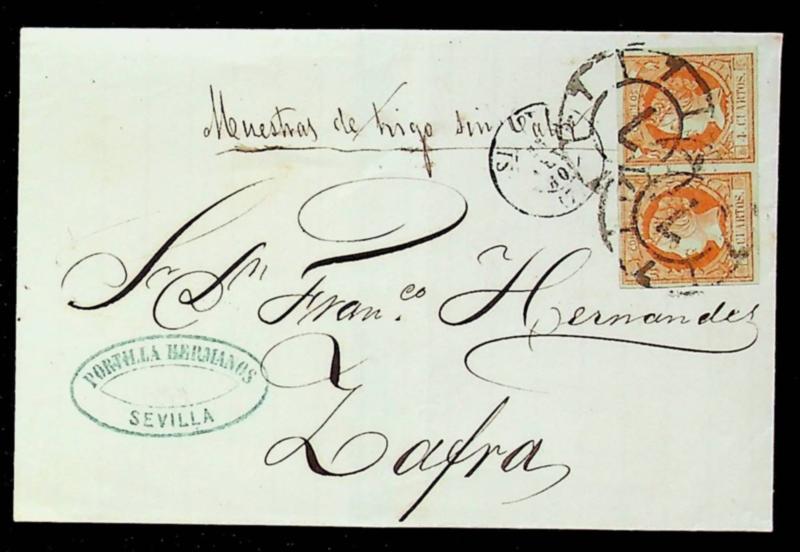 Muestras de trigo sin valor
4 CUARTOS.
CUARTOS.
Sr. Dn. Fran.co Hernandez
PORTILLA HERMANOS
SEVILLA
Zafra